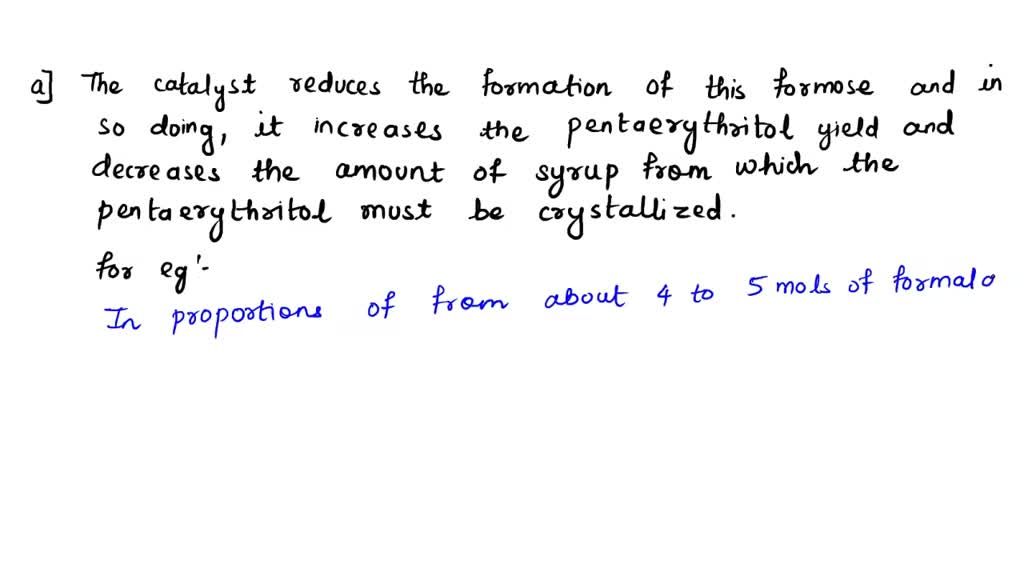 a] The catalyst reduces the formation of this formose and in
so doing, it increases the pentaerythritol yield and
decreases the amount of syrup from which the
pentaerythritol must be crystallized.
for eg:-
In proportions of from about 4 to 5 mols of formald